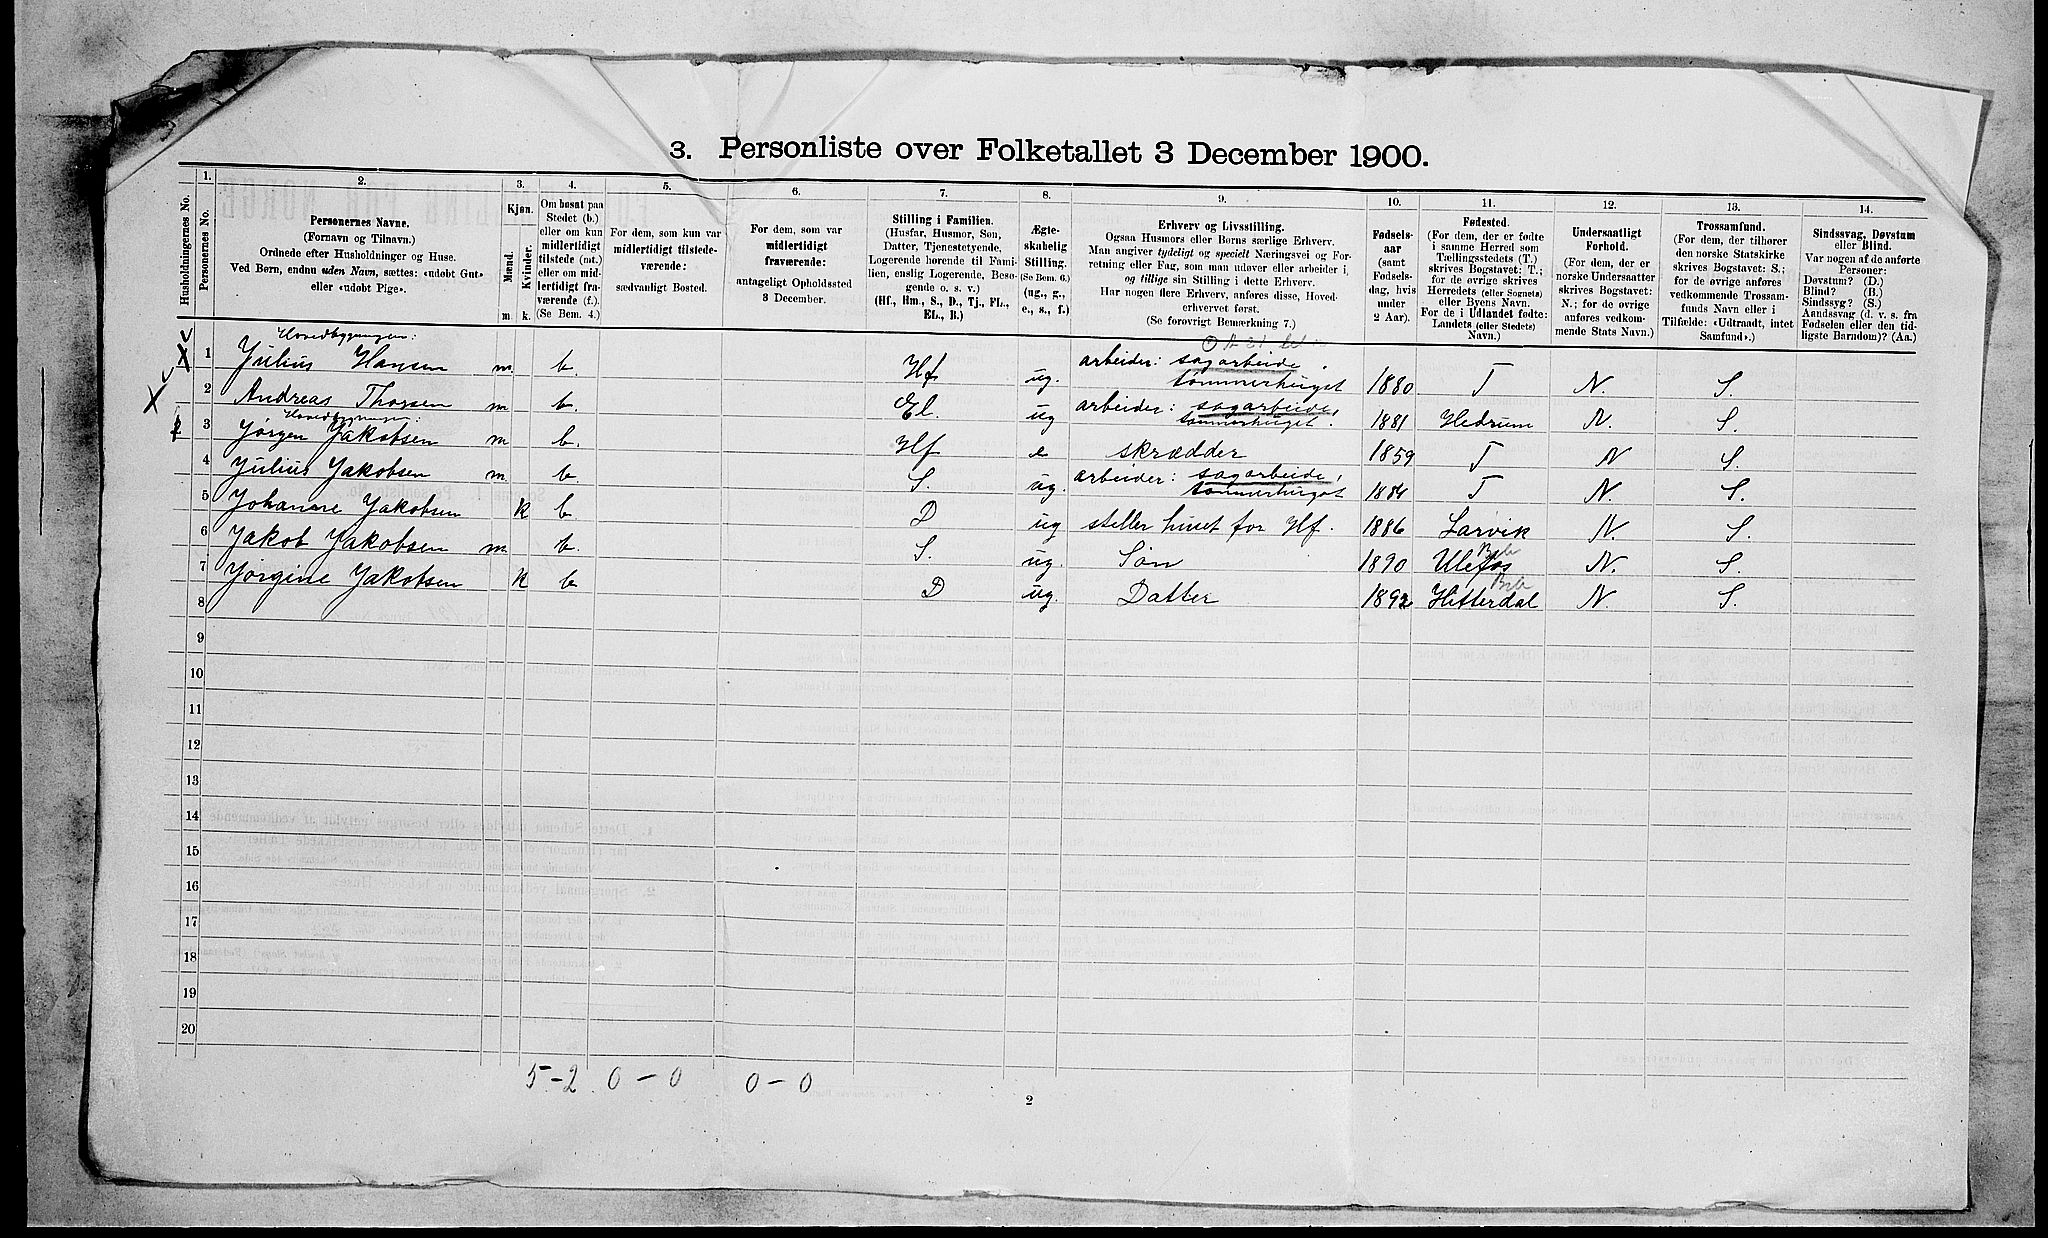 3. Personliste over Folketallet 3 December 1900.
Husholdningernes No.
1.
Personernes No.
2.
Personernes Navne.
(Fornavn og Tilnavn.)
Ordnede efter Husholdninger og Huse.
Ved Børn, endnu uden Navn, sættes: «udøbt Gut»
eller «udøbt Pige».
3.
Kjøn.
Mænd.
Kvinder.
m. k.
4.
Om bosat paa
Stedet (b.)
eller om kun
midlertidigt
tilstede (mt.)
eller om mid-
lertidigt fra-
værende (f.).
(Se Bem. 4.)
5.
For dem, som kun var
midlertidigt tilstede-
værende:
sædvanligt Bosted.
6.
For dem, som var
midlertidigt
fraværende:
antageligt Opholdssted
3 December.
7.
Stilling i Familien.
(Husfar, Husmor, Søn,
Datter, Tjenestetyende,
Logerende hørende til Fami-
lien, enslig Logerende, Besø-
gende o. s. v.)
(Hf., Hm., S., D., Tj., FL.,
EL., B.)
8.
Ægte-
skabelig
Stilling.
(Se Bem. 6.)
(ug., g.,
e., s., f.)
9.
Erhverv og Livsstilling.
Ogsaa Husmors eller Børns særlige Erhverv.
Man angiver tydeligt og specielt Næringsvei og For-
retning eller Fag, som man udøver eller arbeider i,
og tillige sin Stilling i dette Erhverv.
Har nogen flere Erhverv, anføres disse, Hoved-
erhvervet først.
(Se forøvrigt Bemærkning 7.)
10.
Fødsels-
aar
(samt
Fødsels-
dag, hvis
under
2 Aar).
11.
Fødested.
(For dem, der er fødte
i samme Herred som
Tællingsstedets (T.)
skrives Bogstavet: T.;
for de øvrige skrives
Herredets (eller Sognets)
eller Byens Navn.
For de i Udlandet fødte:
Landets (eller Stedets)
Navn.)
12.
Undersaatligt
Forhold.
(For dem, der er
norske Undersaatter
skrives Bogstavet:
N.; for de øvrige
anføres vedkom-
mende Stats Navn.)
13.
Trossamfund.
(For dem, der tilhører
den norske Statskirke
skrives Bogstavet: S.;
for de øvrige anføres
vedkommende Trossam-
funds Navn eller i
Tilfælde: «Udtraadt, intet
Samfund».)
14.
Sindssvag, Døvstum
eller Blind.
Var nogen af de anførte
Personer:
Døvstum? (D.)
Blind? (B.)
Sindssyg? (S.)
Aandssvag (d. v. s. fra
Fødselen eller den tid-
ligste Barndom)? (Aa.)
Hovedbygningen:
1 Julius Hansen m. b. Hf ug. arbeider: sagarbeide, 1880 T N. S.
tømmerhuget
2 Andreas Thorsen m b. El. ug arbeider: sagarbeide, 1881 Hedrum N. S.
tømmerhuget.
Hovedbygningen:
2 3 Jørgen Jakobsen m b. Hf e skrædder 1859 T N S.
4 Julius Jakobsen m. b S. ug. arbeider: sagarbeide, 1884 T N. S.
tømmerhuget
5 Johanne Jakobsen k b. D ug steller huset for Hf. 1886 Larvik N. S.
6 Jakob Jakobsen m. b. S. ug. Søn 1890 Ulefos N. S.
7 Jørgine Jakobsen k b D ug. Datter 1892 Hitterdal N. S.
8
9
10
11
12
13
14
15
16
17
18
19
20
5-2 0-0 0-0
2